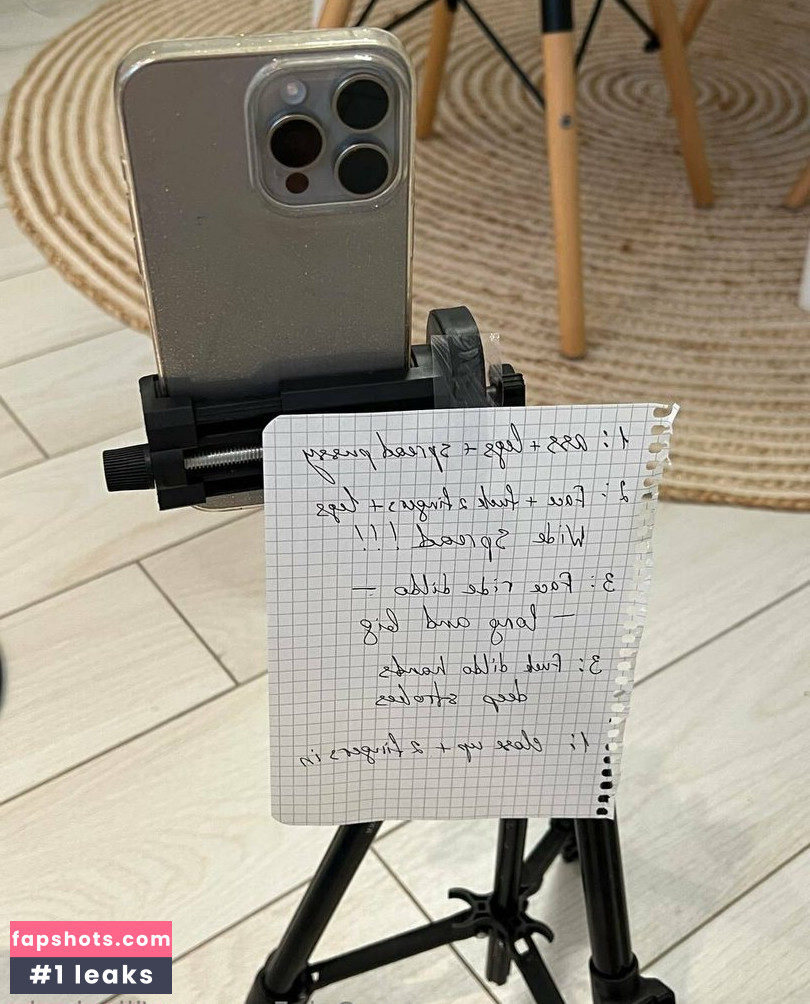 1: ass + legs + spread pussy
2: Face + fuck 2 fingers + legs
Wide Spread !!!
3: Face ride dildo —
— long and big
3: Fuck dildo hands
deep strokes
1: close up + 2 fingers in
fapshots.com
#1 leaks